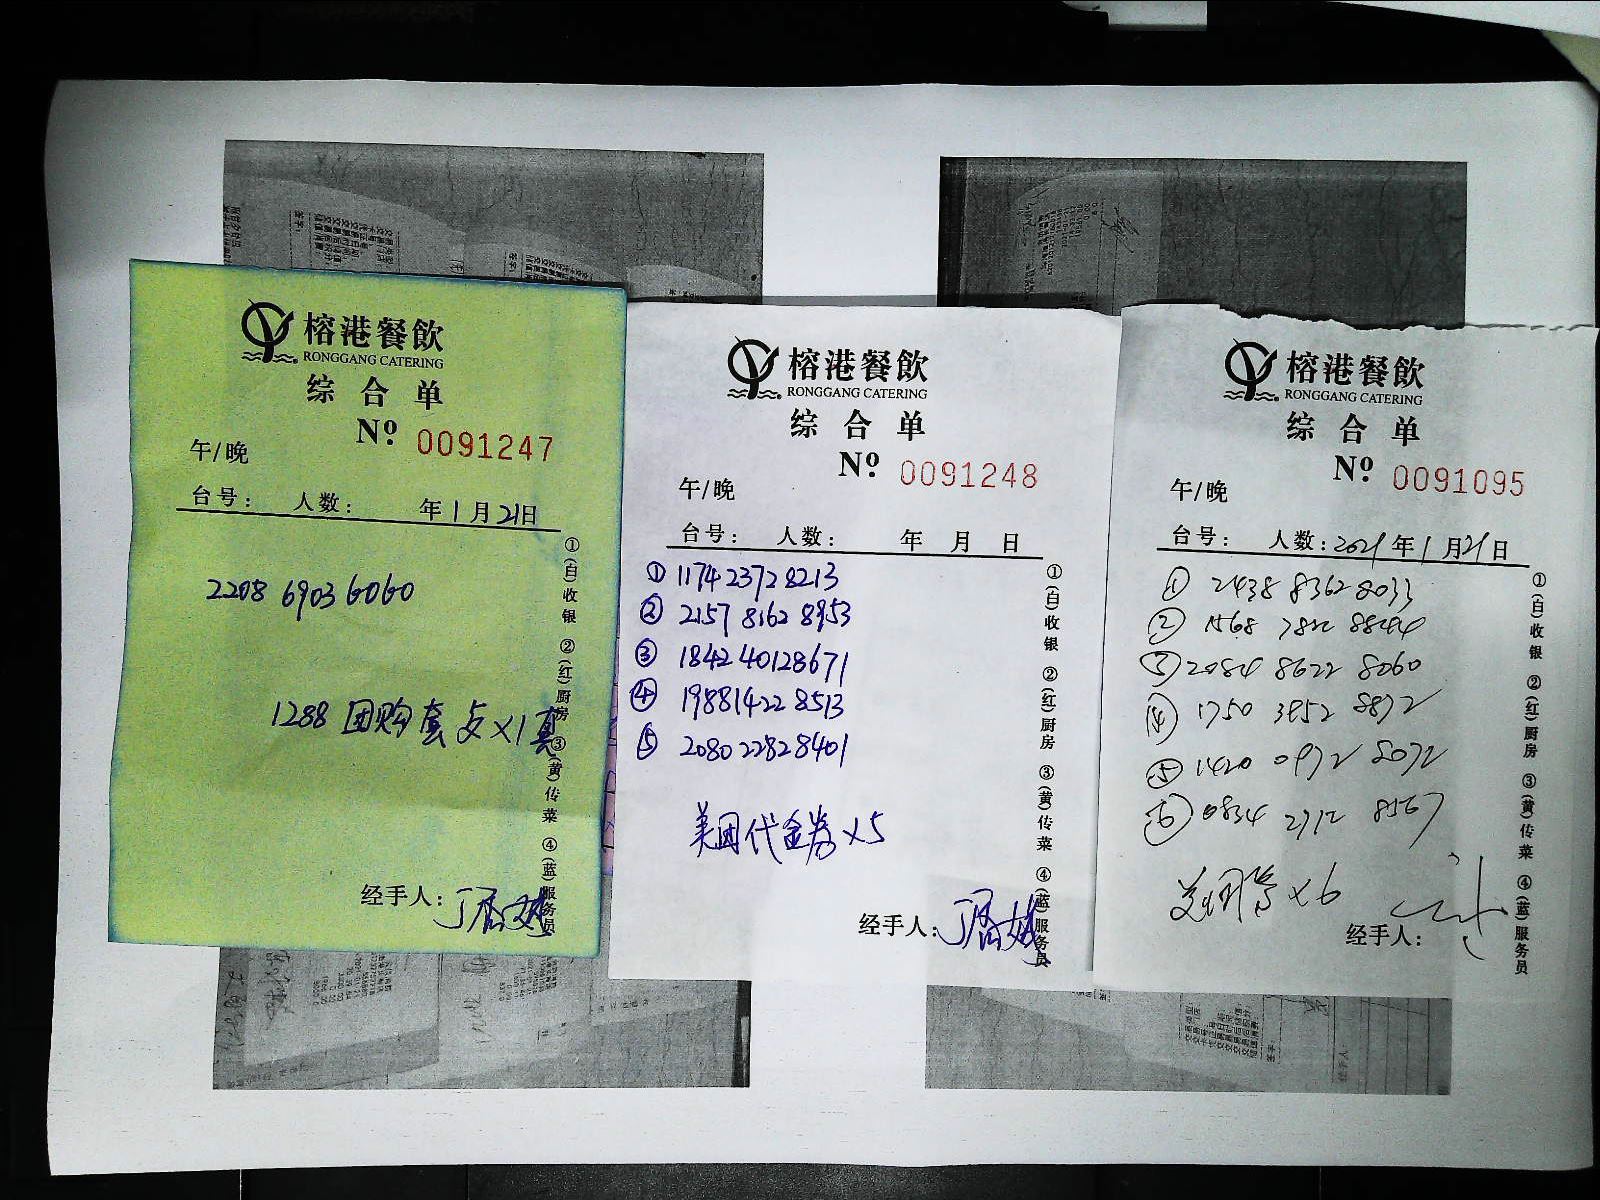 榕港餐飲
RONGGANG CATERING
综合单
Nº 0091247
午/晚
台号： 人数： 年1月21日
2208 6903 6060
1288 团购套点×1
①(白)收银 ②(红)厨房 ③(黄)传菜 ④(蓝)服务员
经手人：
榕港餐飲
RONGGANG CATERING
综合单
Nº 0091248
午/晚
台号： 人数： 年 月 日
① 1174 2372 8213
② 2157 8162 8953
③ 1842 4012 8671
④ 1988 1422 8513
⑤ 2080 2282 8401
美团代金券×5
①(白)收银 ②(红)厨房 ③(黄)传菜 ④(蓝)服务员
经手人：
榕港餐飲
RONGGANG CATERING
综合单
Nº 0091095
午/晚
台号： 人数： 2021年1月21日
① 2438 8362 8033
② 1568
③ 2084 8622 8060
④ 1750 3952 8872
⑤ 1420 0972 8072
⑥ 0834 2712 8567
美团券×6
①(白)收银 ②(红)厨房 ③(黄)传菜 ④(蓝)服务员
经手人：